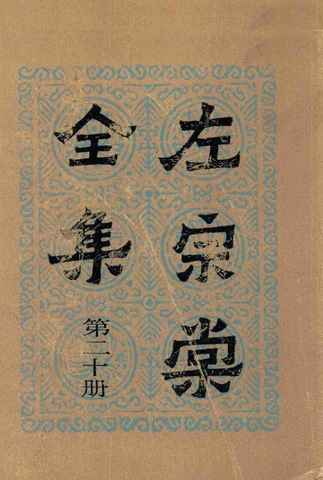 左宗棠
全集
第二十册